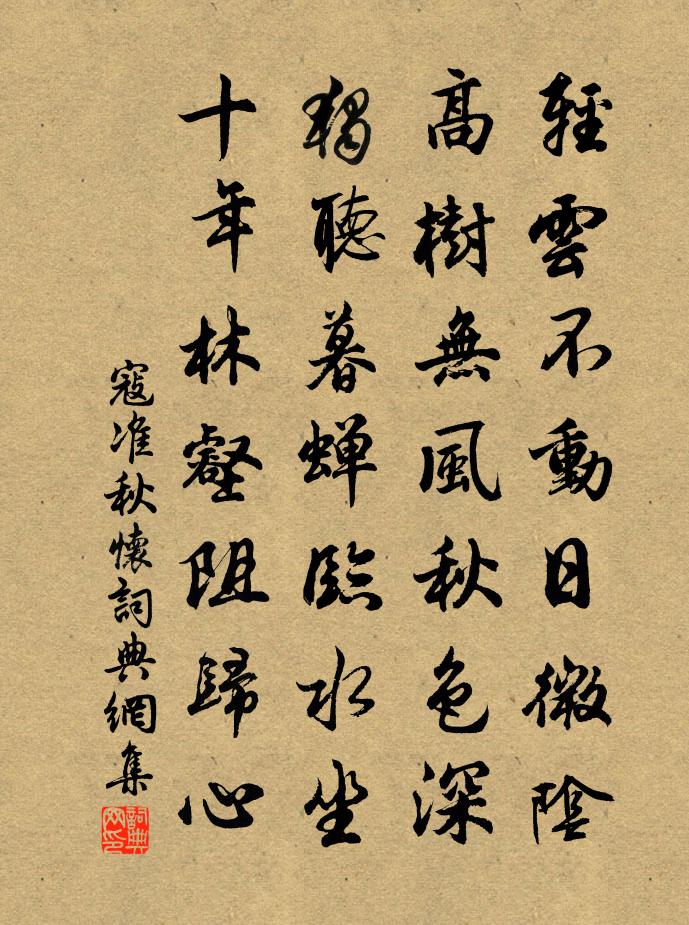 輕雲不動日微陰
高樹無風秋色深
獨聽暮蟬臨水坐
十年林壑阻歸心
寇准秋懷詞典網集
詞典网印